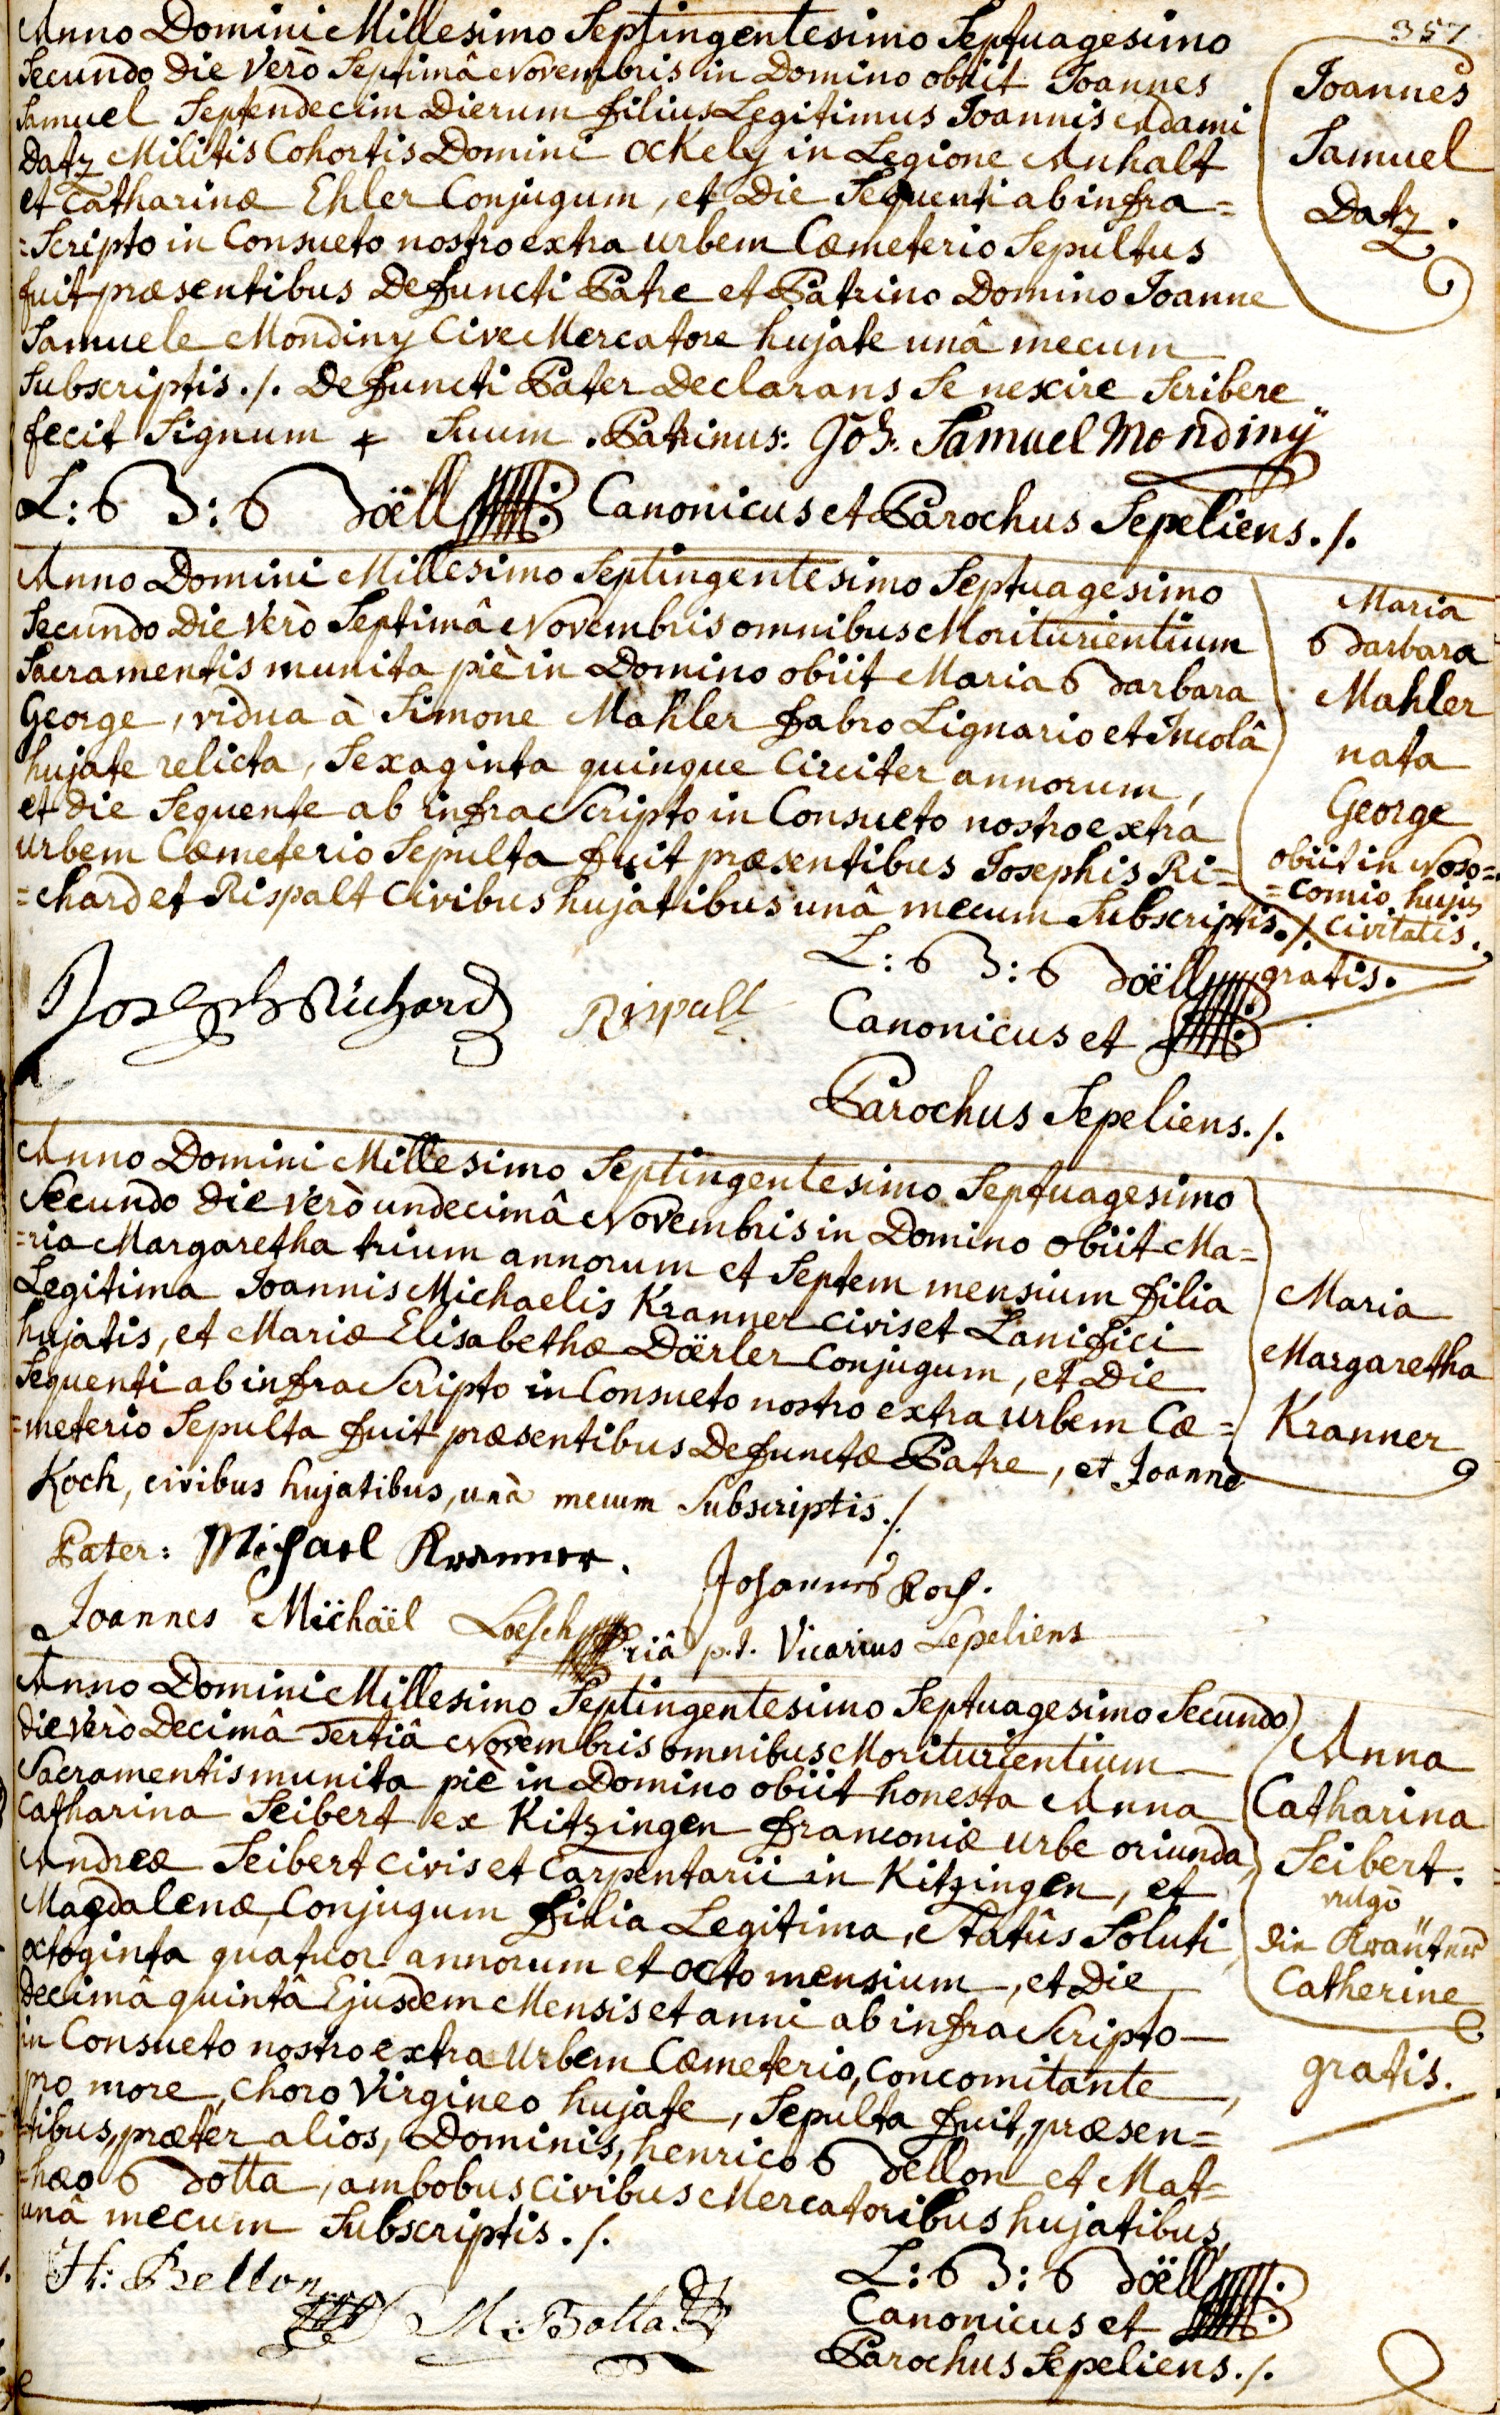 357.
Anno Domini Millesimo Septingentesimo Septuagesimo
Secundo die verò Septimâ Novembris in Domino obiit Joannes
Samuel Septendecim Dierum filius Legitimus Joannis Adami
Datz Militis Cohortis Domini Ockely in Legione Anhalt
et Catharinæ Ehler Conjugum, et Die Sequenti ab infra=
=Scripto in Consueto nostro extra urbem Cœmeterio Sepultus
fuit præsentibus Defuncti Patre et Patrino Domino Joanne
Samuele Mondiny Cive Mercatore hujate unâ mecum
Subscriptis ./. Defuncti Pater Declarans Se nescire Scribere
fecit Signum + Suum . Patrinus: Joh. Samuel Mondinÿ
L: B: Boëll Canonicus et Parochus Sepeliens ./.
Joannes
Samuel
Datz.
Anno Domini Millesimo Septingentesimo Septuagesimo
Secundo Die verò Septimâ Novembris omnibus Moriturientium
Sacramentis munita piè in Domino obiit Maria Barbara
George, vidua à Simone Mahler fabro Lignario et Incolâ
hujate relicta, Sexaginta quinque Circiter annorum,
et die Sequente ab infra Scripto in Consueto nostro extra
urbem Cœmeterio Sepulta fuit præsentibus Josephis Ri=
=chard et Rispalt Civibus hujatibus unâ mecum Subscriptis ./.
Maria
Barbara
Mahler
nata
George
obiit in Noso=
=comio hujus
Civitatis.
gratis.
Joseph Richard Rispalt
L: B: Boëll
Canonicus et
Parochus Sepeliens ./.
Anno Domini Millesimo Septingentesimo Septuagesimo
Secundo die verò undecimâ Novembris in Domino obiit Ma=
=ria Margaretha trium annorum et Septem mensium filia
Legitima Joannis Michaelis Kranner civis et Lanifici
hujatis, et Mariæ Elisabethæ Dörler Conjugum, et Die
Sequenti ab infra Scripto in Consueto nostro extra urbem Cœ=
=meterio Sepulta fuit præsentibus Defunctæ Patre, et Joanne
Koch, civibus hujatibus, unà mecum Subscriptis ./.
Maria
Margaretha
Kranner
Pater: Michael Kranner. Johannes Koch.
Joannes Mïchäël Loesch p.t. Vicarius Sepeliens
Anno Domini Millesimo Septingentesimo Septuagesimo Secundo
die verò Decimâ Tertiâ Novembris omnibus Moriturientium
Sacramentis munita piè in Domino obiit honesta Anna
Catharina Seibert ex Kitzingen franconiæ urbe oriunda
Andreæ Seibert civis et Carpentarii in Kitzingen, et
Magdalenæ, Conjugum filia Legitima, Statûs Soluti
octoginta quatuor annorum et octo mensium, et Die
Decimâ quintâ Ejusdem Mensis et anni ab infra Scripto
in Consueto nostro extra Urbem Cœmeterio, Concomitante
pro more, Choro Virgineo hujate, Sepulta fuit, præsen=
=tibus, præter alios, Dominis, henrico Bellon et Mat=
=hæo Botta, ambobus Civibus Mercatoribus hujatibus,
unâ mecum Subscriptis ./.
Anna
Catharina
Seibert.
vulgò
die Kräuter
Catherine
gratis.
H: Bellon M: Botta
L: B: Boëll
Canonicus et
Parochus Sepeliens ./.